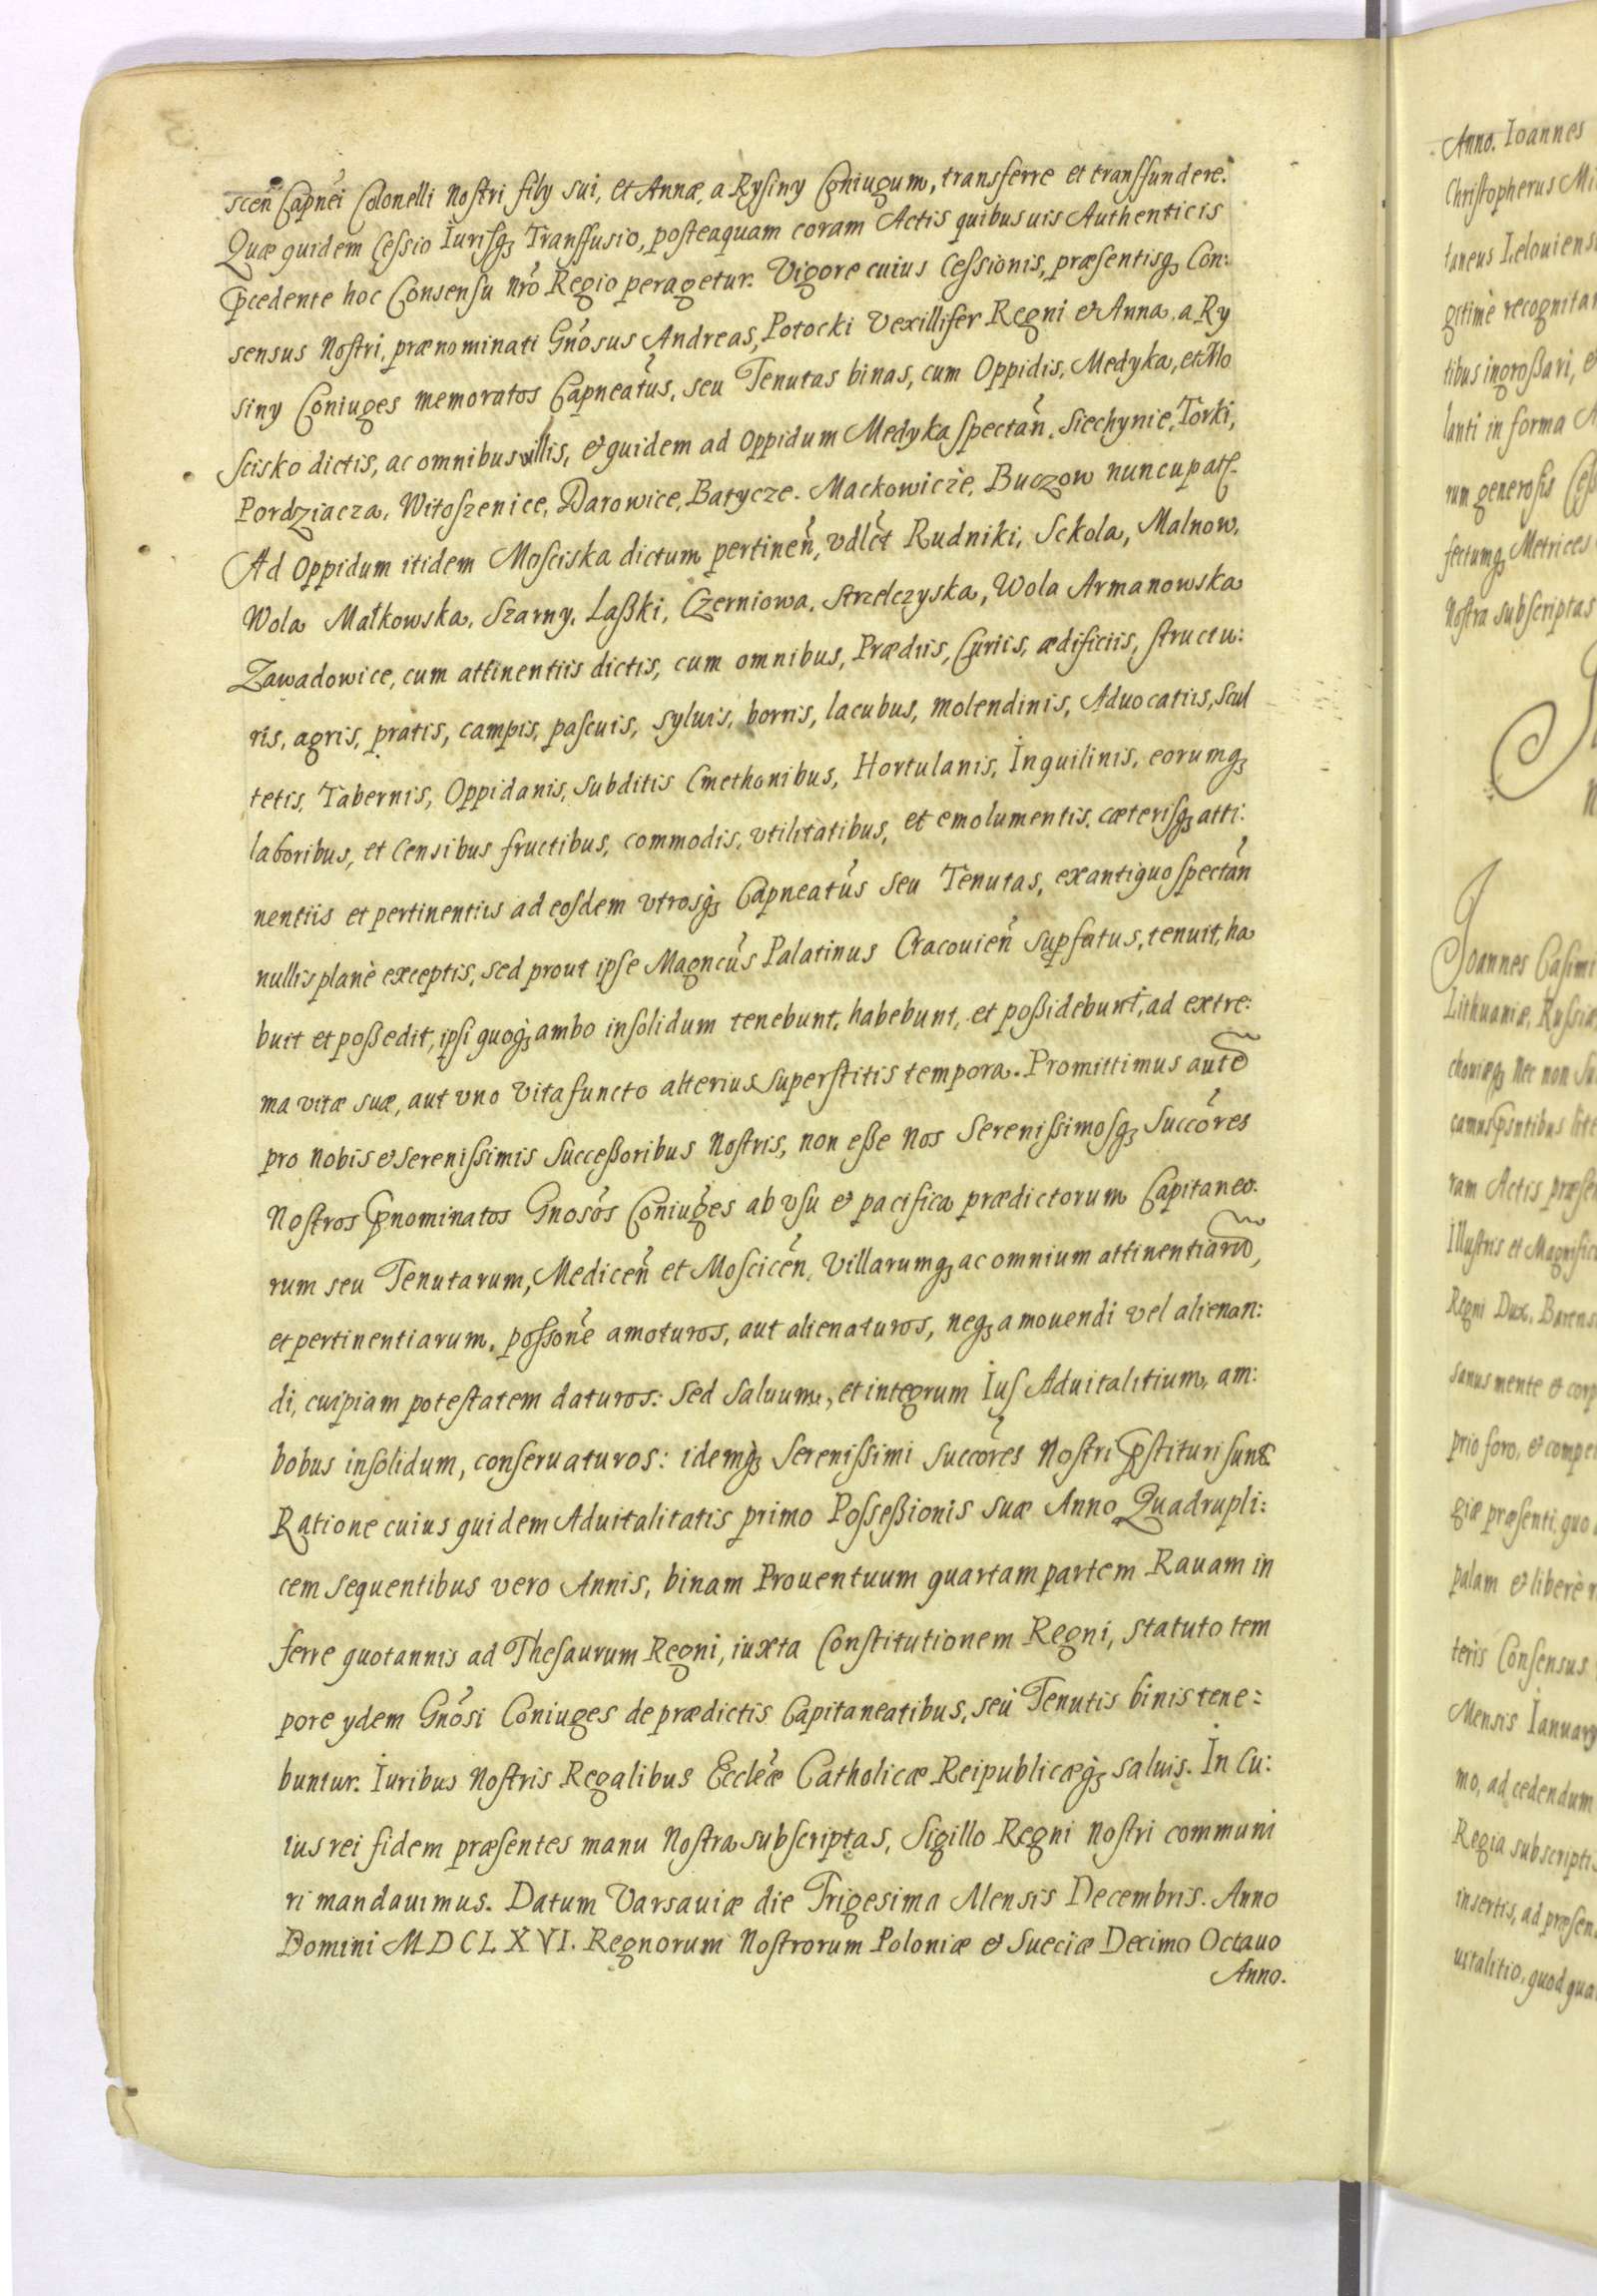 scen̄ Capnei Colonelli Nostri filij sui, et Annæ, a Rysiny Coniugum, transferre et transfundere.
Quæ quidem Cessio Iurisq₃ Transfusio, posteaquam coram Actis quibusuis Authenticis
p̄cedente hoc Consensu nr̄o Regio peragetur. Vigore cuius Cessionis, præsentisq₃ Con:
sensus Nostri, prænominati Gnosus Andreas, Potocki Vexillifer Regni et Anna, a Ry
siny Coniuges memoratos Capneatus, seu Tenutas binas, cum Oppidis, Medyka, et Mo
scisko dictis, ac omnibus villis, et quidem ad Oppidum Medyka spectan̄. Siechynie, Torki,
Pordziacza, Witoszenice, Darowice, Batycze. Mackowicze, Buczow nuncupat.
Ad Oppidum itidem Mosciska dictum pertinen̄, vdlct Rudniki, Sckola, Malnow,
Wola Małkowska, Szarny, Laßki, Czerniowa, Strzelczyska, Wola Armanowska
Zawadowice, cum attinentiis dictis, cum omnibus, Prædiis, Curiis, ædificiis, structu:
ris, agris, pratis, campis, pascuis, syluis, borris, lacubus, molendinis, Aduocatiis, Scul
tetis, Tabernis, Oppidanis, Subditis Cmethonibus, Hortulanis, Inquilinis, eorumq₃
laboribus, et Censibus fructibus, commodis, vtilitatibus, et emolumentis, cæterisq₃ atti:
nentiis et pertinentiis ad eosdem vtrosq₃ Capneatus seu Tenutas, ex antiquo spectan̄
nullis planè exceptis, sed prout ipse Magncus Palatinus Cracouien̄ supfatus, tenuit, ha
buit et poßedit, ipsi quoq₃ ambo insolidum tenebunt, habebunt, et poßidebunt, ad extre:
ma vitæ suæ, aut vno vita functo alterius superstitis tempora. Promittimus autē
pro nobis et Serenissimis Succeßoribus Nostris, non eße Nos Serenißimosq₃ Succores
Nostros p̄nominatos Gnosos Coniuges ab vsu et pacifica prædictorum Capitaneo.
rum seu Tenutarum, Medicen̄ et Moscicen̄, Villarumq₃ ac omnium attinentiarū,
et pertinentiarum, possone amoturos, aut alienaturos, neq₃ amouendi vel alienan:
di, cuipiam potestatem daturos: Sed Saluum, et integrum Ius Aduitalitium, am:
bobus insolidum, conseruaturos: idemq₃ Serenissimi Succores Nostri p̄stituri sunt.
Ratione cuius quidem Aduitalitatis primo Posseßionis suæ Anno Quadrupli:
cem sequentibus vero Annis, binam Prouentuum quartam partem Rauam in
ferre quotannis ad Thesaurum Regni, iuxta Constitutionem Regni, statuto tem
pore ydem Gnosi Coniuges de prædictis Capitaneatibus, seu Tenutis binis tene:
buntur. Iuribus Nostris Regalibus Eccleæ Catholicæ Reipublicæq₃ saluis. In Cu:
ius rei fidem præsentes manu Nostra subscriptas, Sigillo Regni nostri communi
ri mandauimus. Datum Varsauiæ die Trigesima Mensis Decembris. Anno
Domini MDCLXVI. Regnorum Nostrorum Poloniæ et Sueciæ Decimo Octauo
Anno.
Anno. Ioannes
Christopherus Mi
taneus Lelouiens
gitimè recognita
tibus ingroßari, e
lanti in forma
rum generosis Ceß
fectumq₃ Metrices
Nostra subscriptas
Joannes Casimi
Lithuaniæ, Russiæ
nec non Su
camus p̄sntibus lite
ram Actis præse
Illustris et Magnific
Regni Dux, Barens
sanus mente et corp
prio foro, et compe
giæ præsenti, quo
palam et liberè r
teris Consensus
Mensis Ianuary
mo, ad cedendum
Regia subscripti
insertis, ad præsen
uitalitio, quod qua